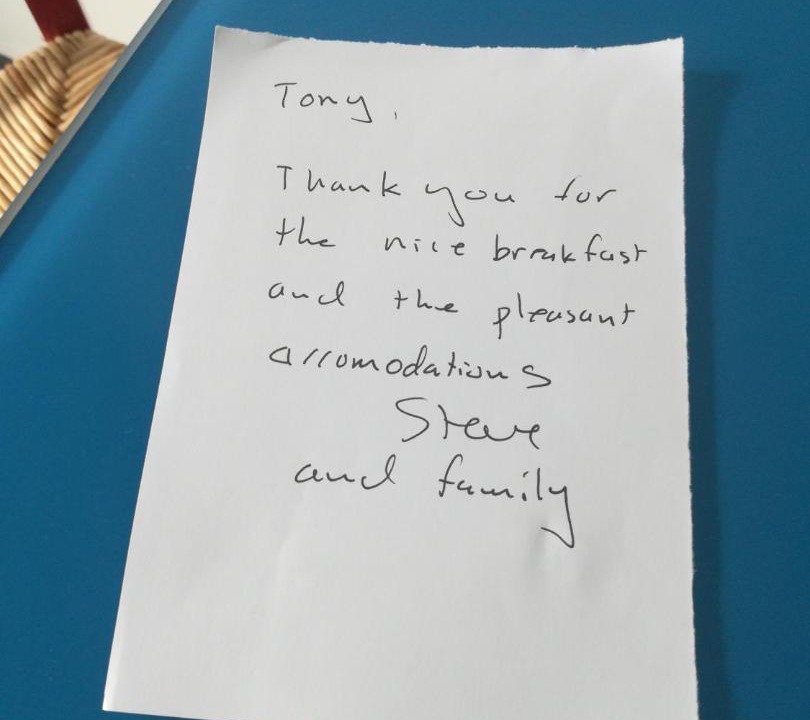 Tony,
Thank you for
the nice breakfast
and the pleasant
accomodations
Steve
and family